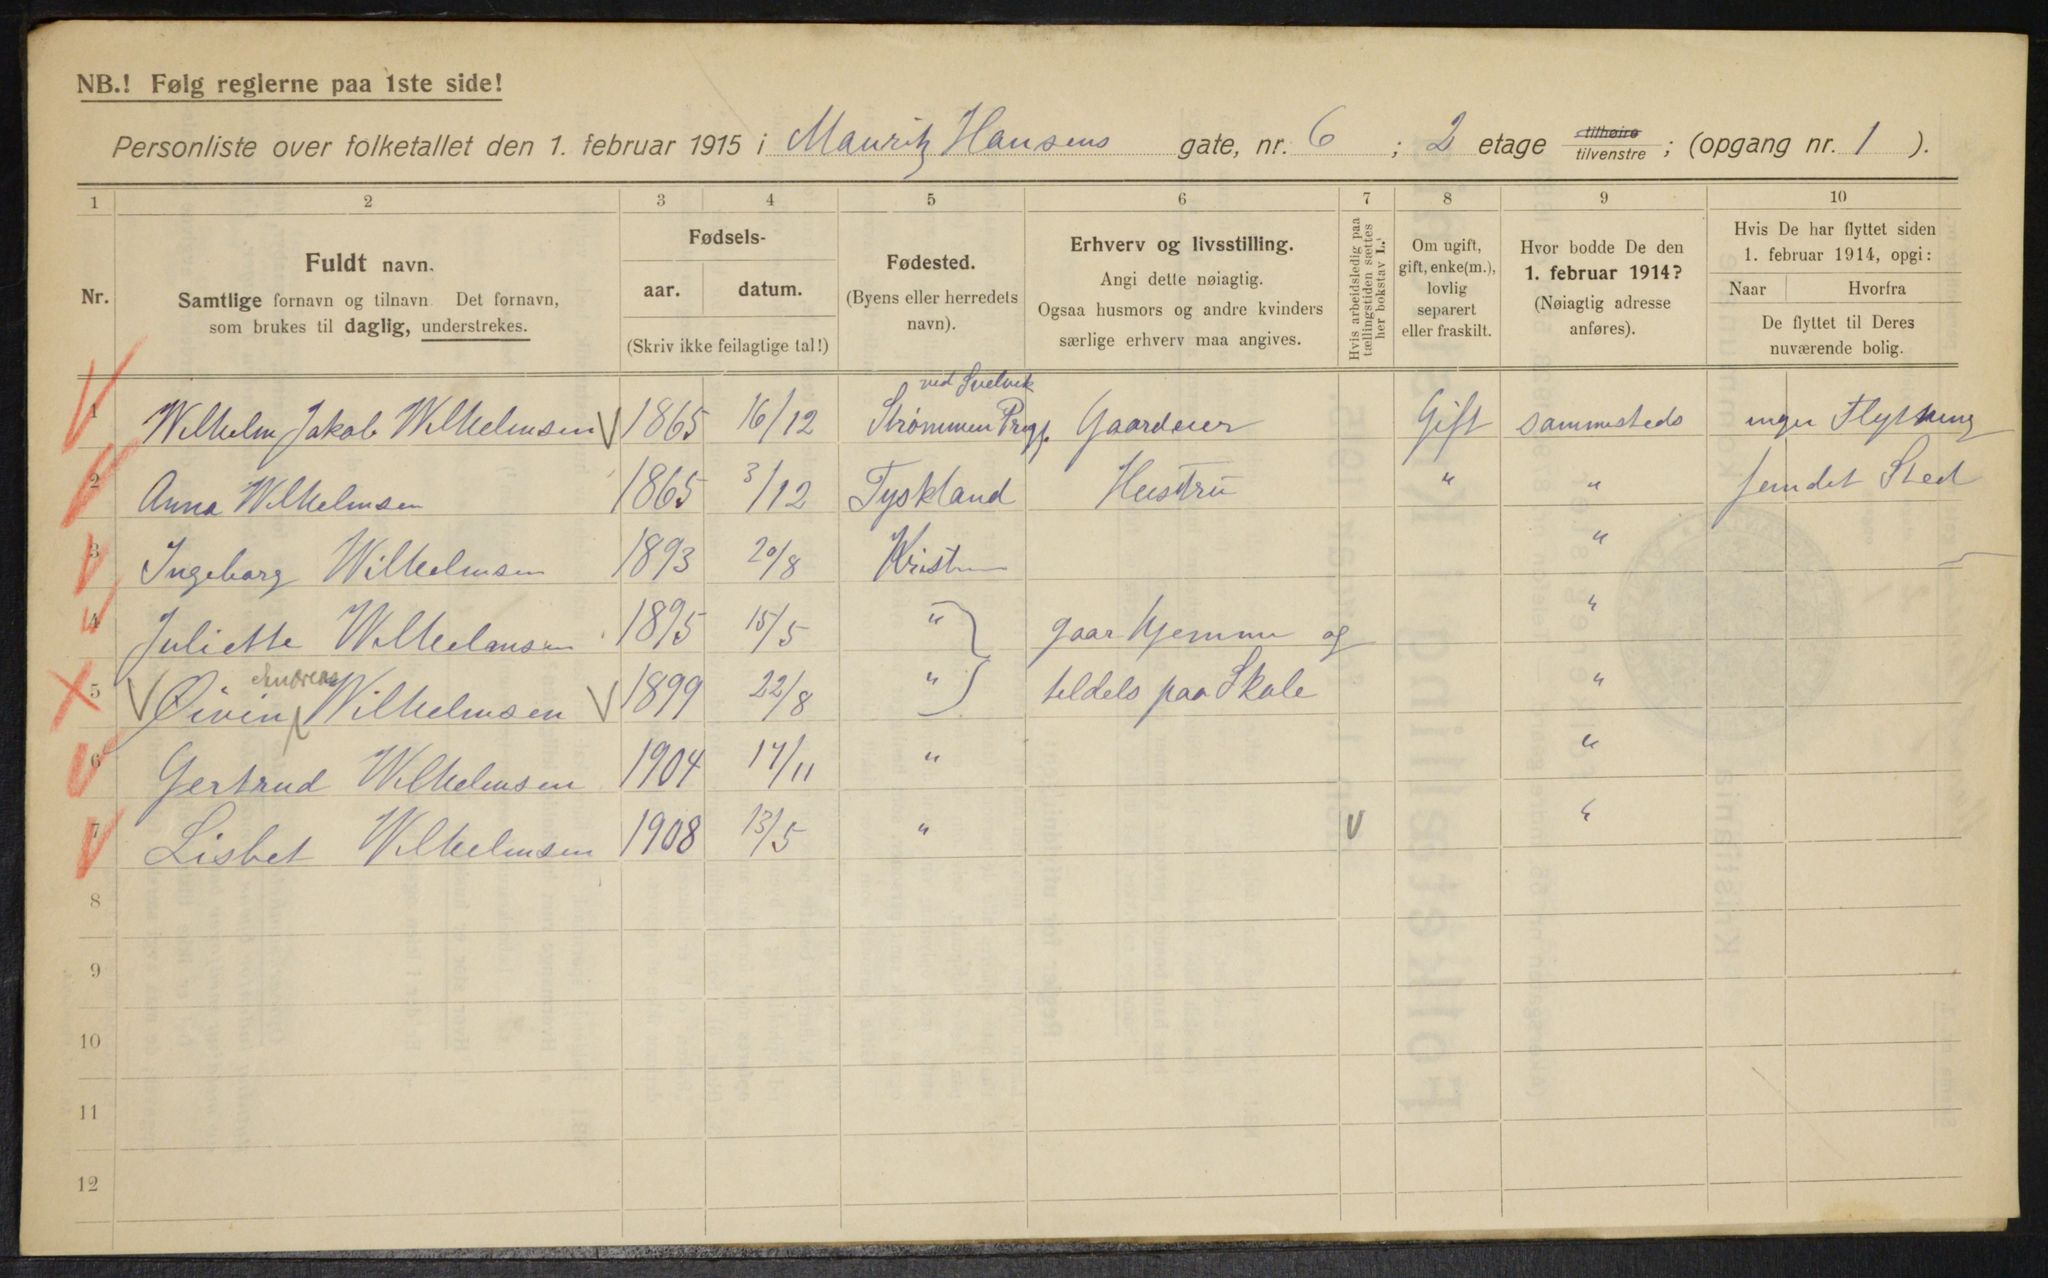 NB.! Følg reglerne paa 1ste side!
Personliste over folketallet den 1. februar 1915 i Mauritz Hansens gate, nr. 6 ; 2 etage tilhøire tilvenstre ; (opgang nr. 1 ).
1 2 3 4 5 6 7 8 9 10
Nr.
Fuldt navn.
Samtlige fornavn og tilnavn. Det fornavn,
som brukes til daglig, understrekes.
Fødsels-
aar. datum.
(Skriv ikke feilagtige tal!)
Fødested.
(Byens eller herredets
navn).
Erhverv og livsstilling.
Angi dette nøiagtig.
Ogsaa husmors og andre kvinders
særlige erhverv maa angives.
Hvis arbeidsledig paa
tællingstiden sættes
her bokstav L.
Om ugift,
gift, enke(m.),
lovlig
separert
eller fraskilt.
Hvor bodde De den
1. februar 1914?
(Nøiagtig adresse
anføres).
Hvis De har flyttet siden
1. februar 1914, opgi:
Naar Hvorfra
De flyttet til Deres
nuværende bolig.
ved Svelvik
1 Wilhelm Jakob Wilhelmsen 1865 16/12 Strømmen Gaardeier Gift sammesteds ingen Flytning
2 Anna Wilhelmsen 1865 3/12 Tyskland Hustru " " Sted
3 Ingeborg Wilhelmsen 1893 20/8 Kristia "
4 Juliette Wilhelmsen 1895 15/5 " gaar hjemme og "
5 Øivin Wilhelmsen 1899 22/8 " teldels paa Skole "
6 Gertrud Wilhelmsen 1904 17/11 " "
7 Lisbet Wilhelmsen 1908 13/5 " "
8
9
10
11
12